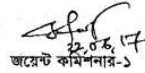 22,06,17
জয়েন্ট কমিশনার-১